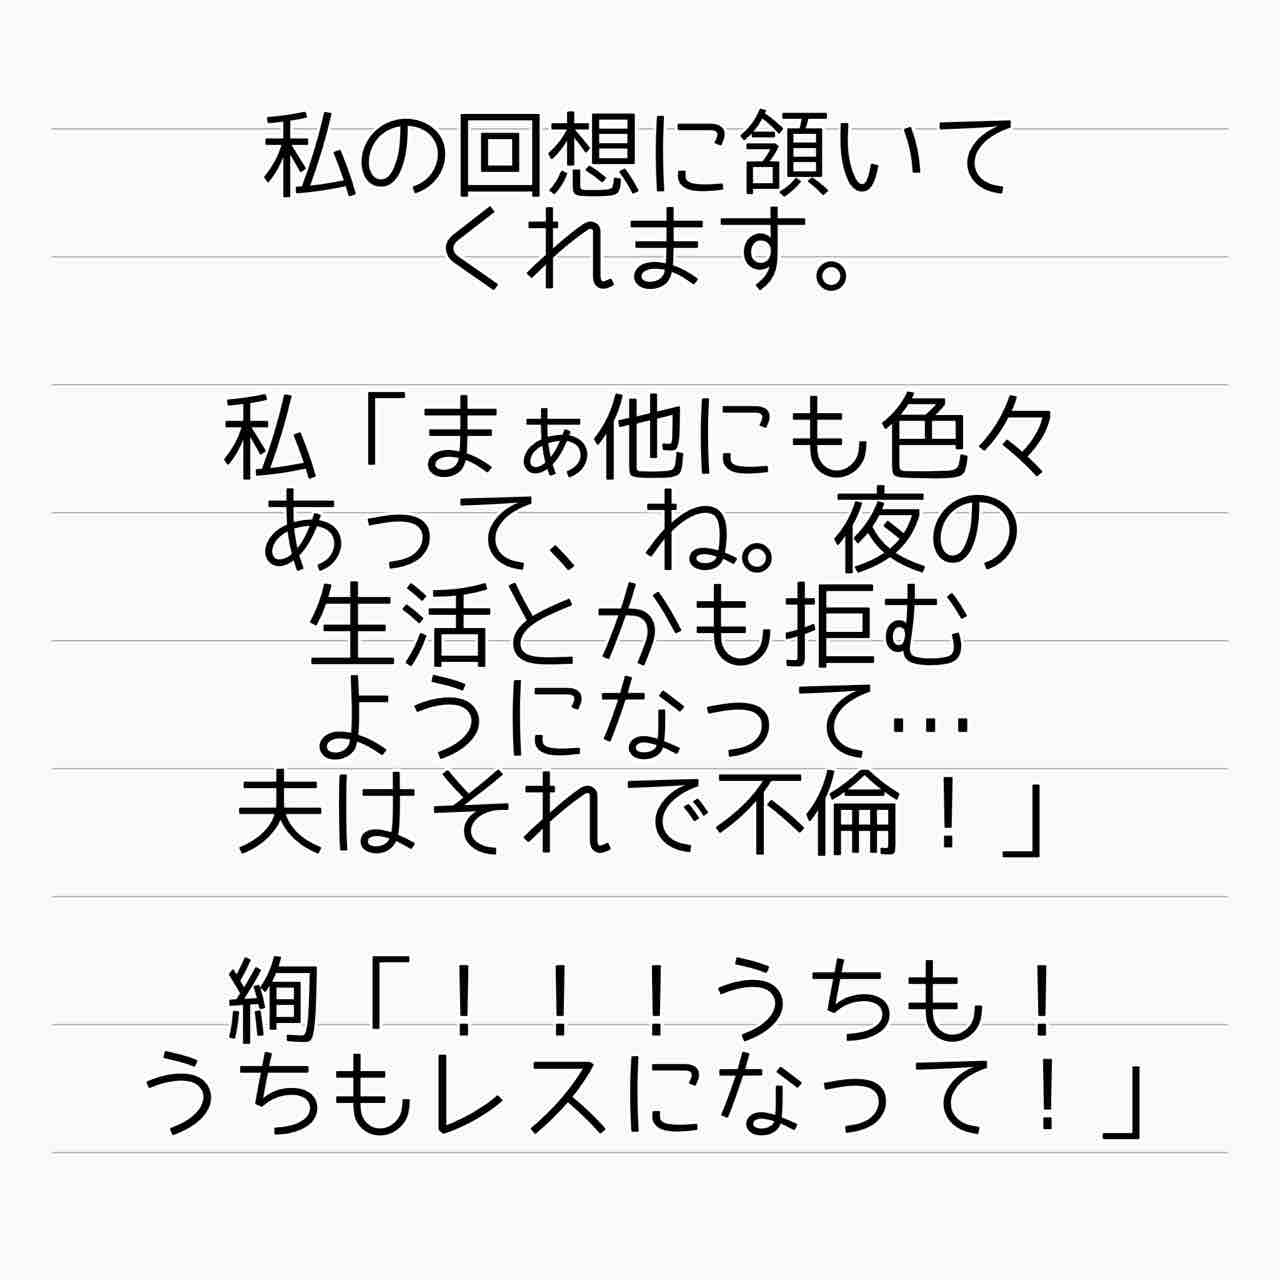 私の回想に頷いて
くれます。
私「まぁ他にも色々
あって、ね。夜の
生活とかも拒む
ようになって…
夫はそれで不倫！」
絢「！！！うちも！
うちもレスになって！」